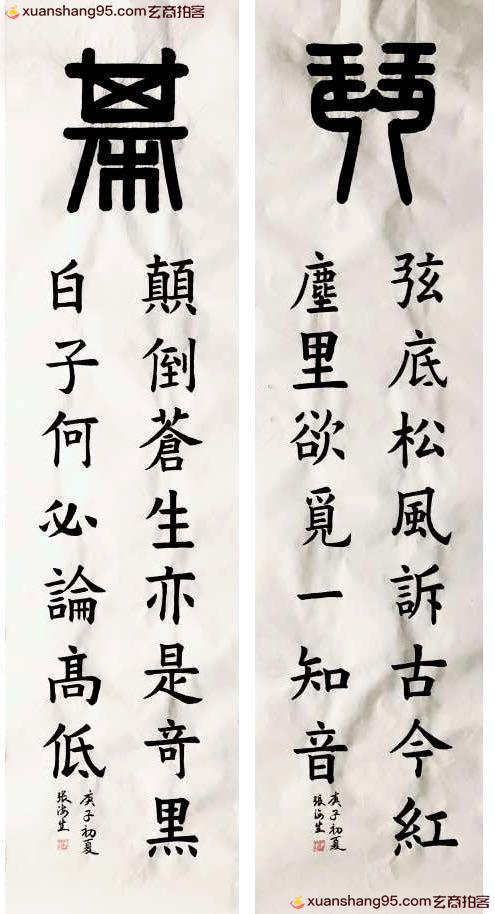 xuanshang95.com玄商拍客
琴
弦底松風訴古今紅
塵里欲覓一知音
庚子初夏
張海生
棊
顛倒蒼生亦是奇黑
白子何必論高低
庚子初夏
張海生
xuanshang95.com玄商拍客